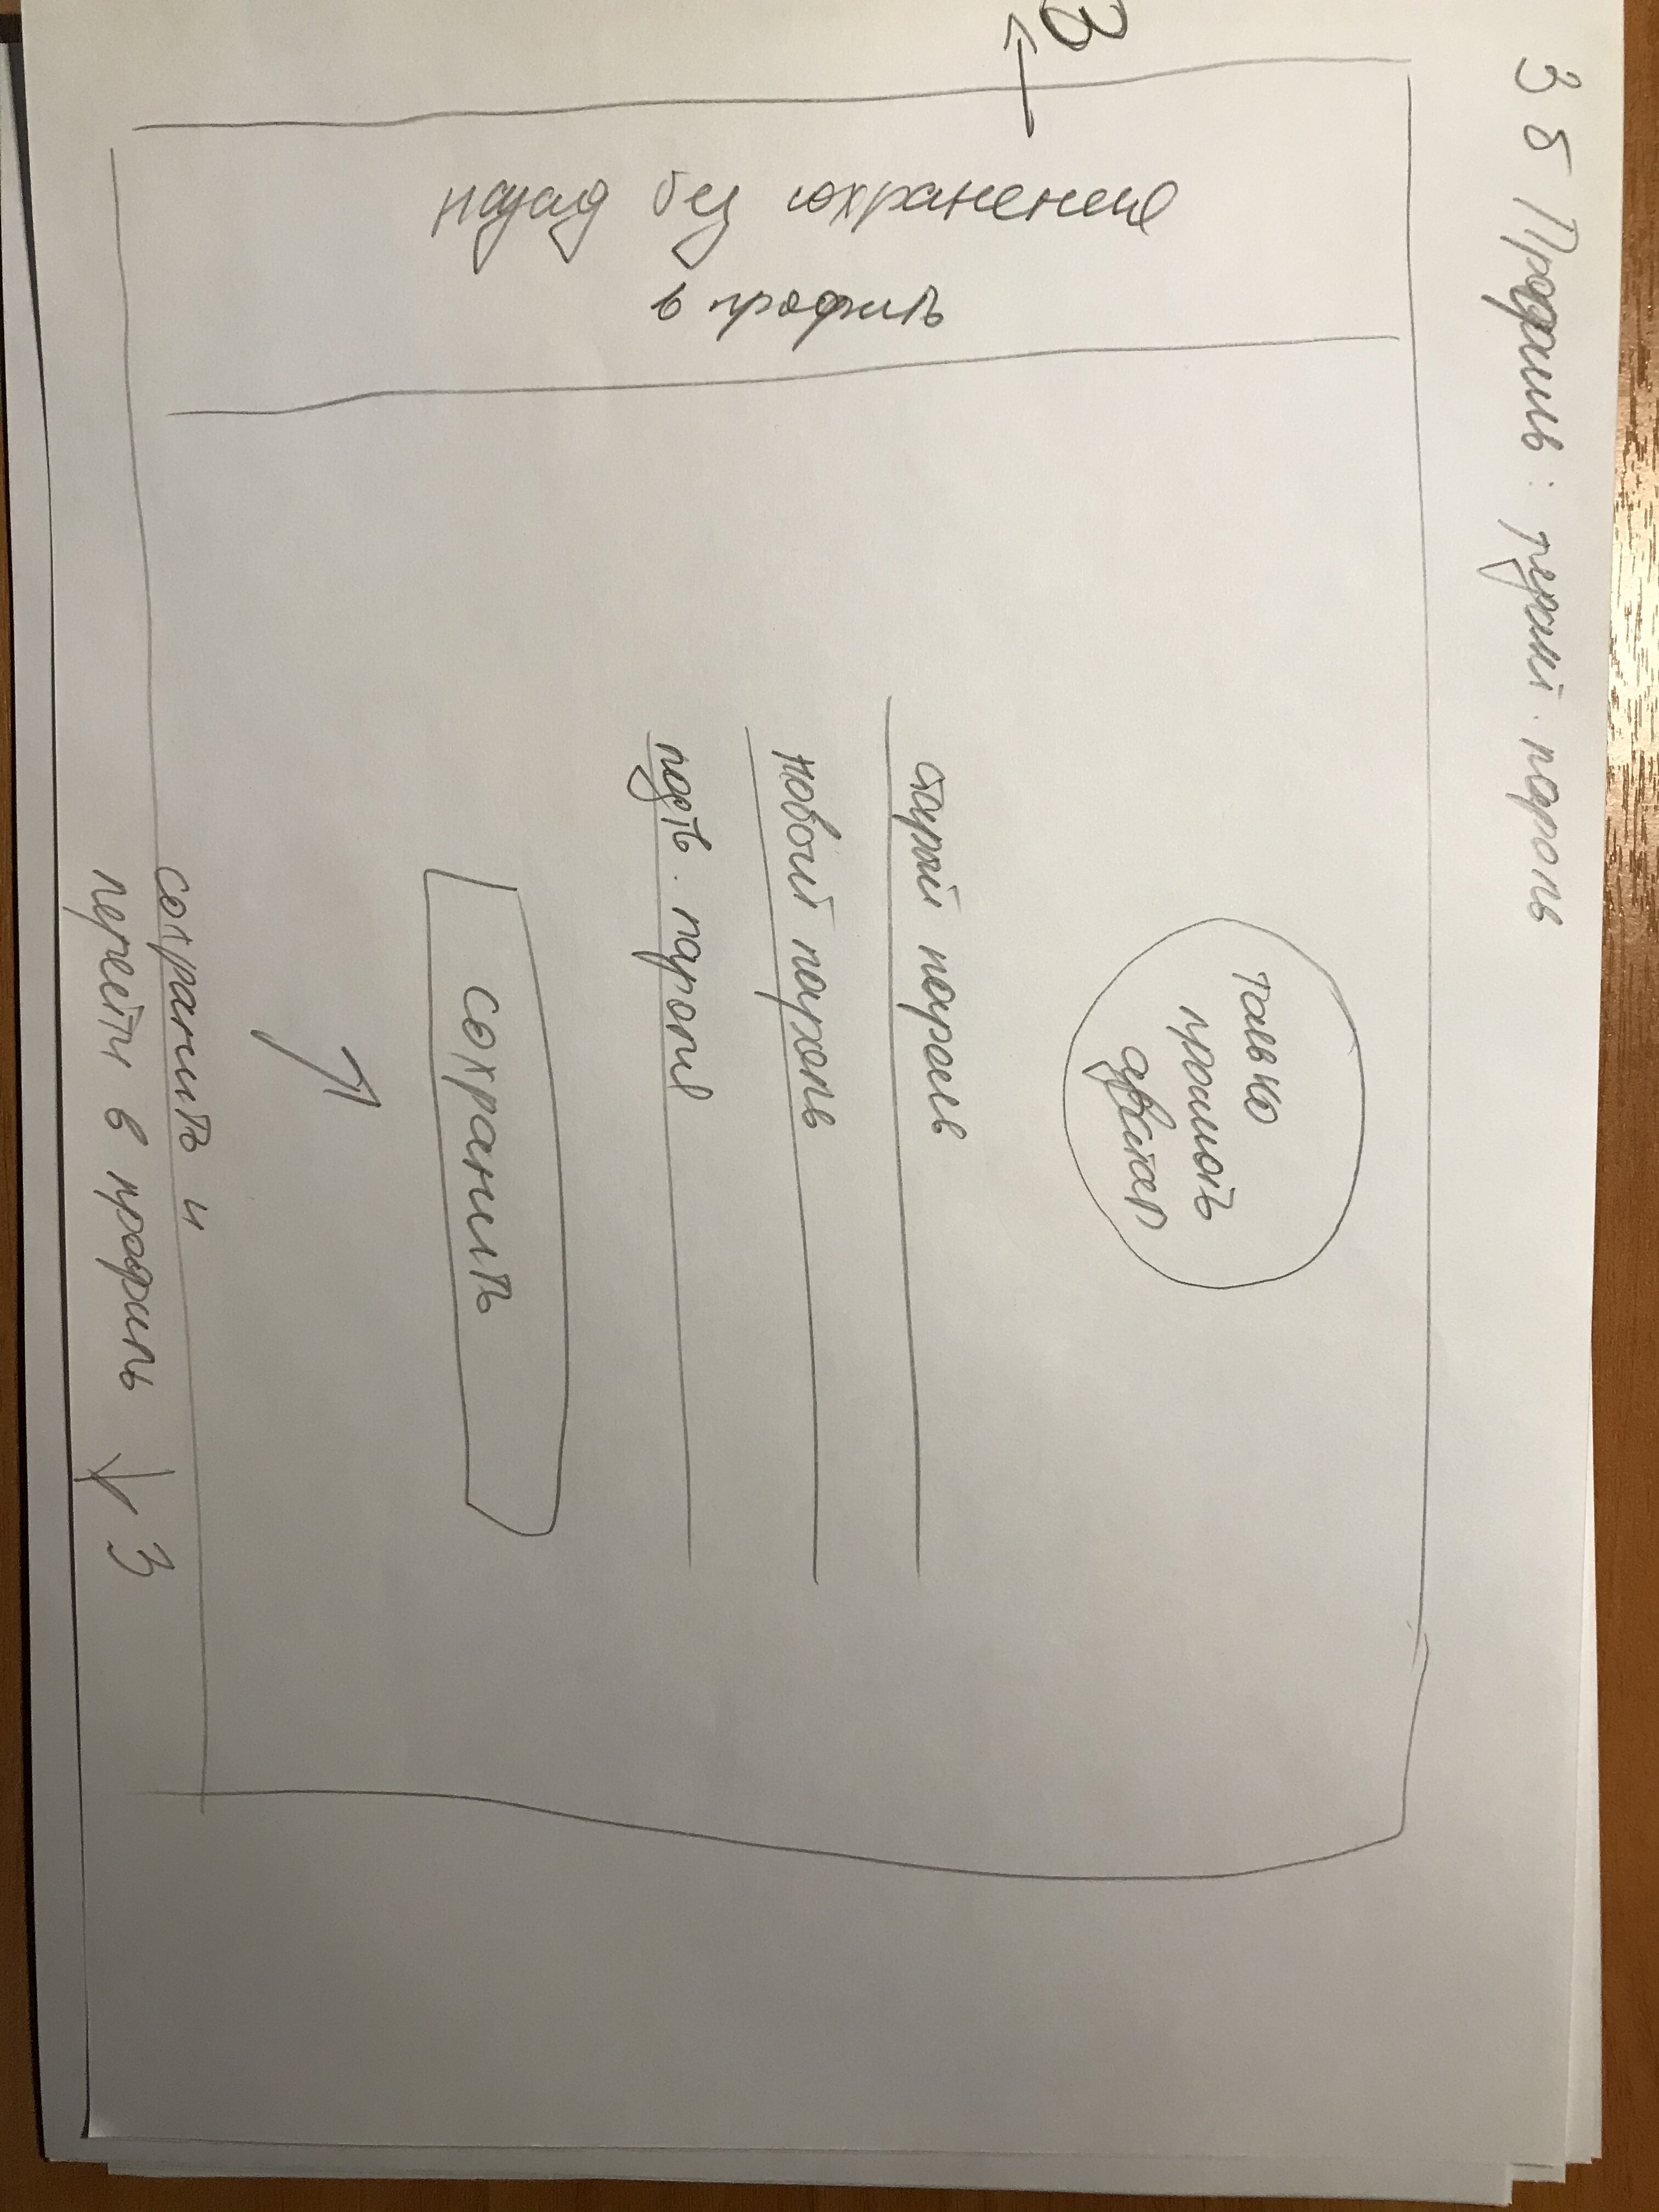 3 б Профиль: редакт. пароль
3
назад без сохранения
в профиль
только
просмотр
аватар
старый пароль
новый пароль
подтв. пароля
сохранить
сохранить и
перейти в профиль → 3